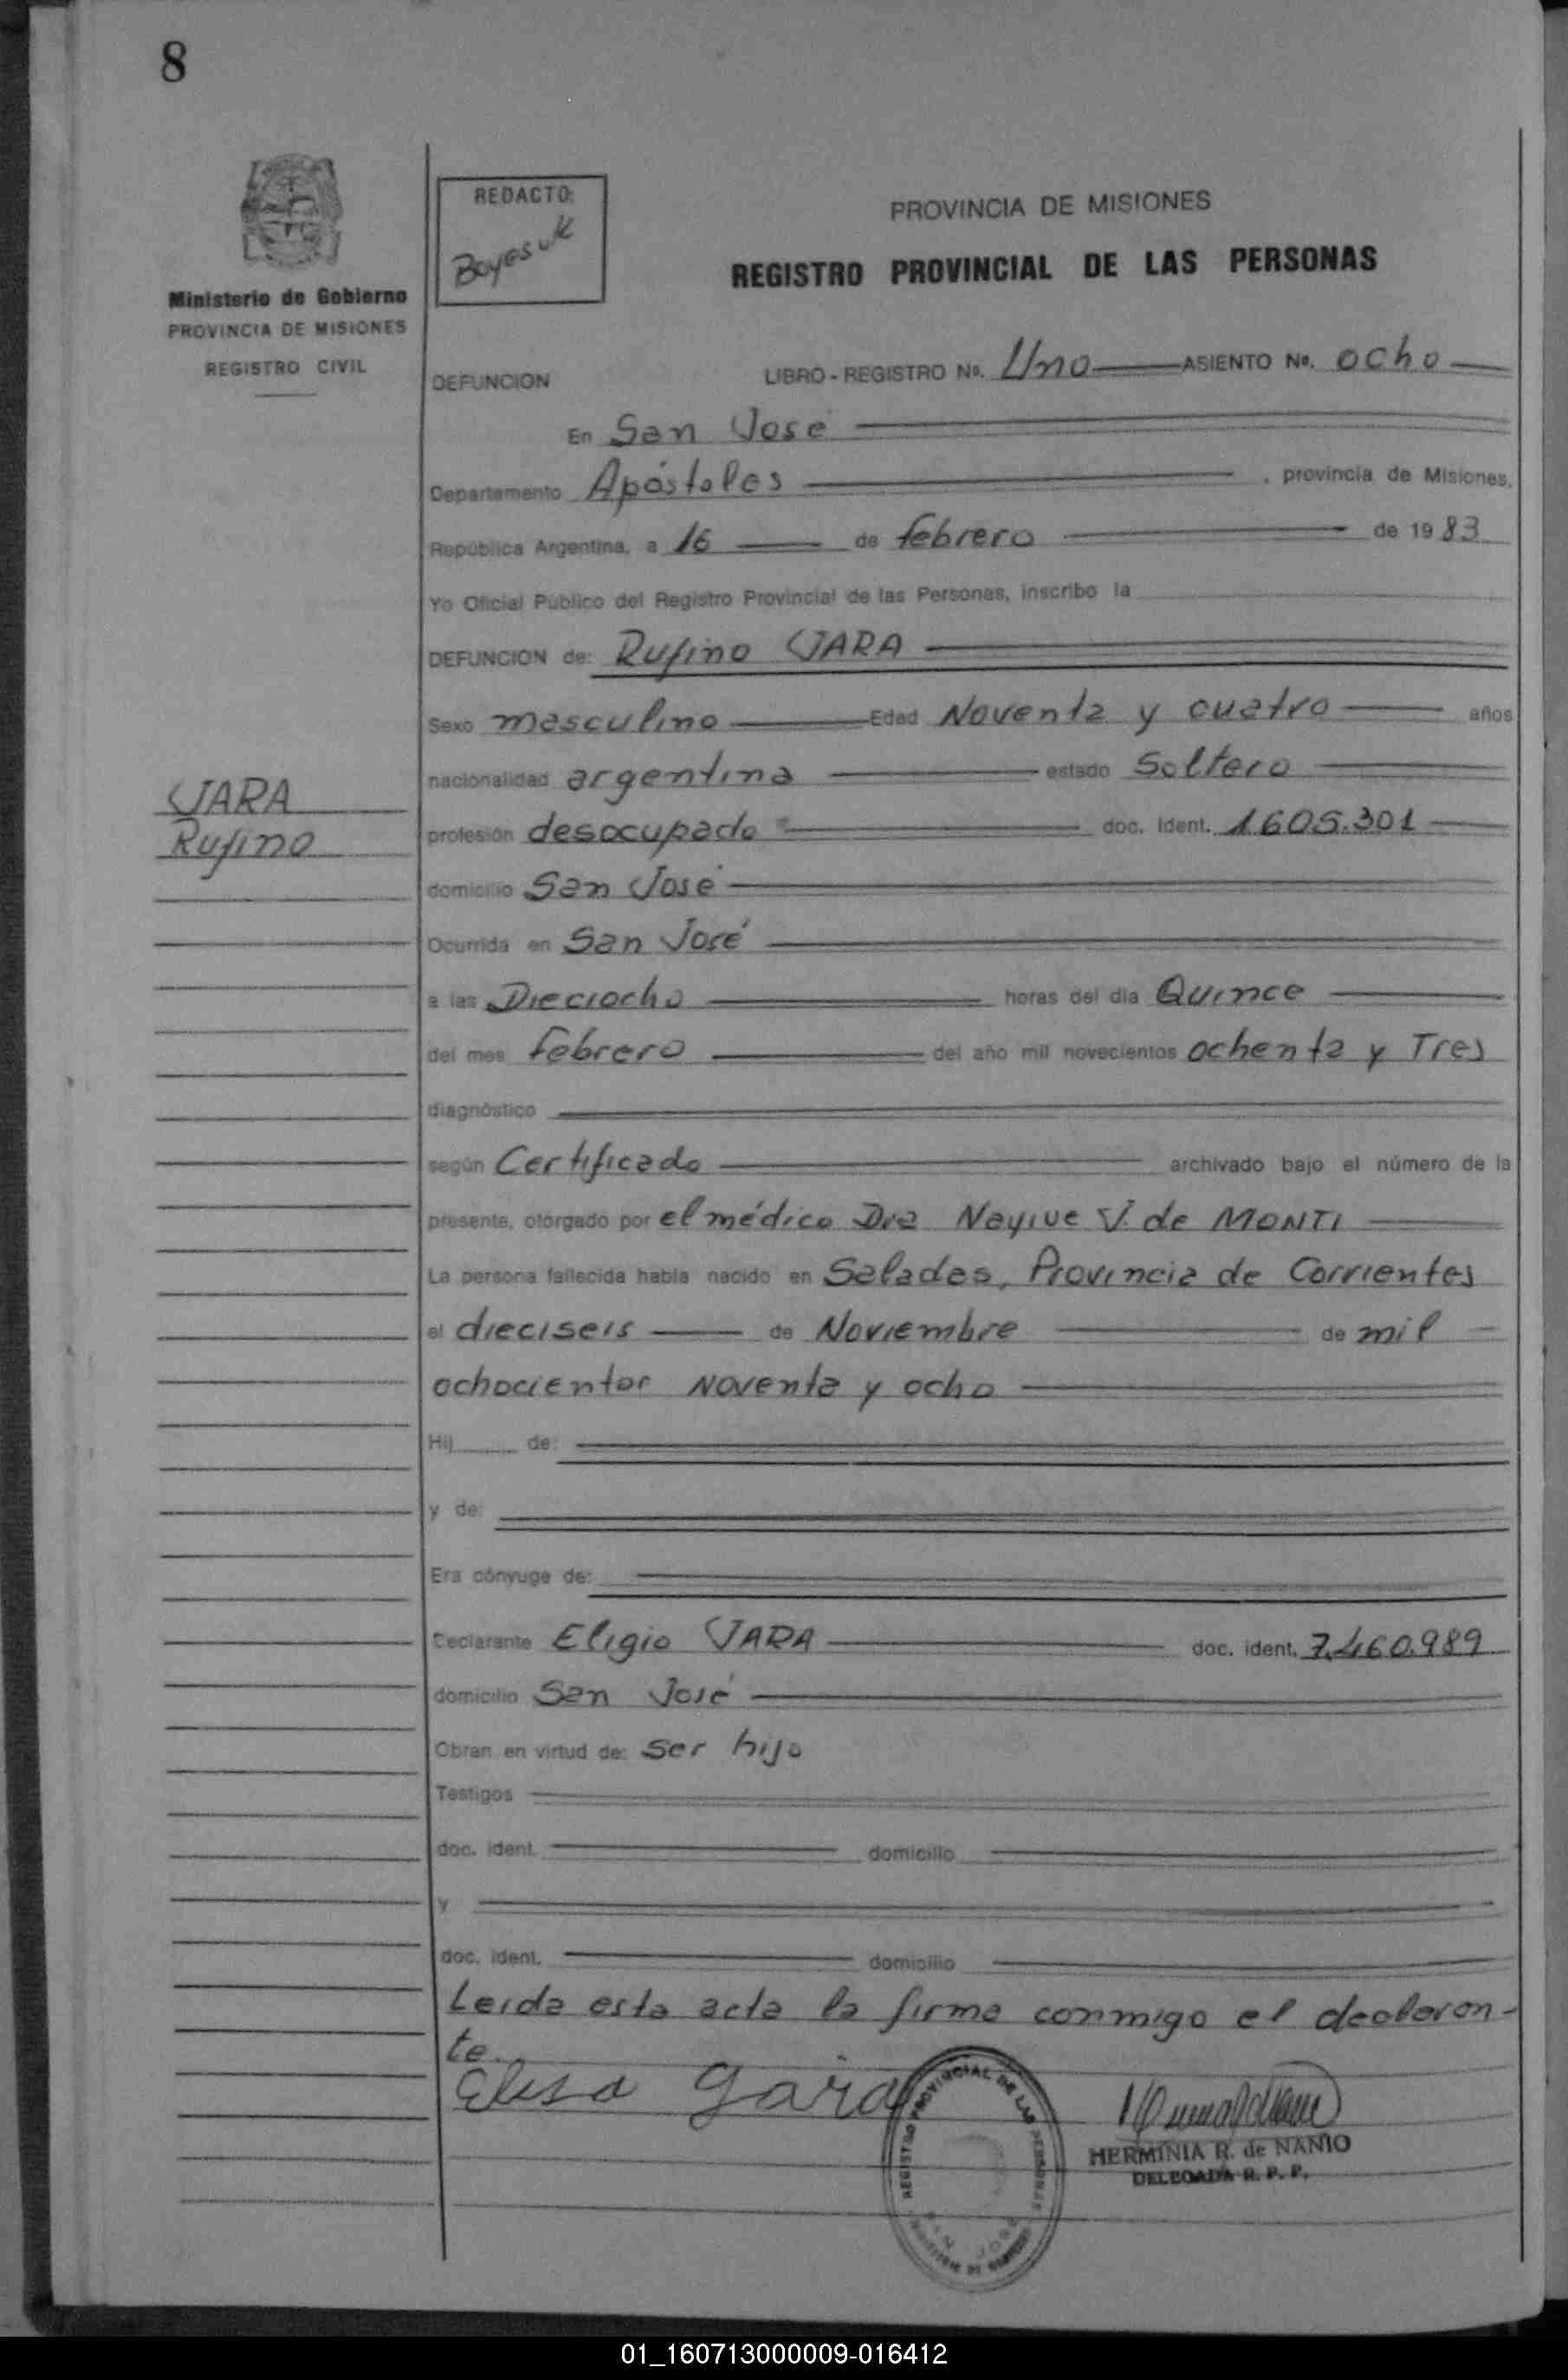 8
REDACTO:
Boyesuk
PROVINCIA DE MISIONES
REGISTRO PROVINCIAL DE LAS PERSONAS
Ministerio de Gobierno
PROVINCIA DE MISIONES
REGISTRO CIVIL
DEFUNCION LIBRO - REGISTRO Nº. Uno ASIENTO Nº. ocho
En San José
Departamento Apóstoles , provincia de Misiones,
República Argentina, a 16 de febrero de 1983
Yo Oficial Público del Registro Provincial de las Personas, inscribo la
DEFUNCION de: Rufino JARA
Sexo masculino Edad Noventa y cuatro años
nacionalidad argentina estado Soltero
JARA
Rufino
profesión desocupado doc. Ident. 1605.301
domicilio San José
Ocurrida en San José
a las Dieciocho horas del día Quince
del mes febrero del año mil novecientos ochenta y Tres
diagnóstico
según Certificado archivado bajo el número de la
presente, otorgado por el médico Dra Nayive V. de MONTI
La persona fallecida había nacido en Saladas, Provincia de Corrientes
el dieciseis de Noviembre de mil
ochocientos Noventa y ocho
Hij de:
y de:
Era cónyuge de:
Declarante Eligio JARA doc. ident. 7.460.989
domicilio San José
Obran en virtud de: ser hijo
Testigos
doc. ident. domicilio
y
doc. ident. domicilio
Leida esta acta la firma conmigo el declaran-
te.
Elisa Gara
REGISTRO PROVINCIAL DE LAS PERSONAS
SAN JOSE
HERMINIA R. de NANIO
DELEGADA R. P. P.
01_160713000009-016412